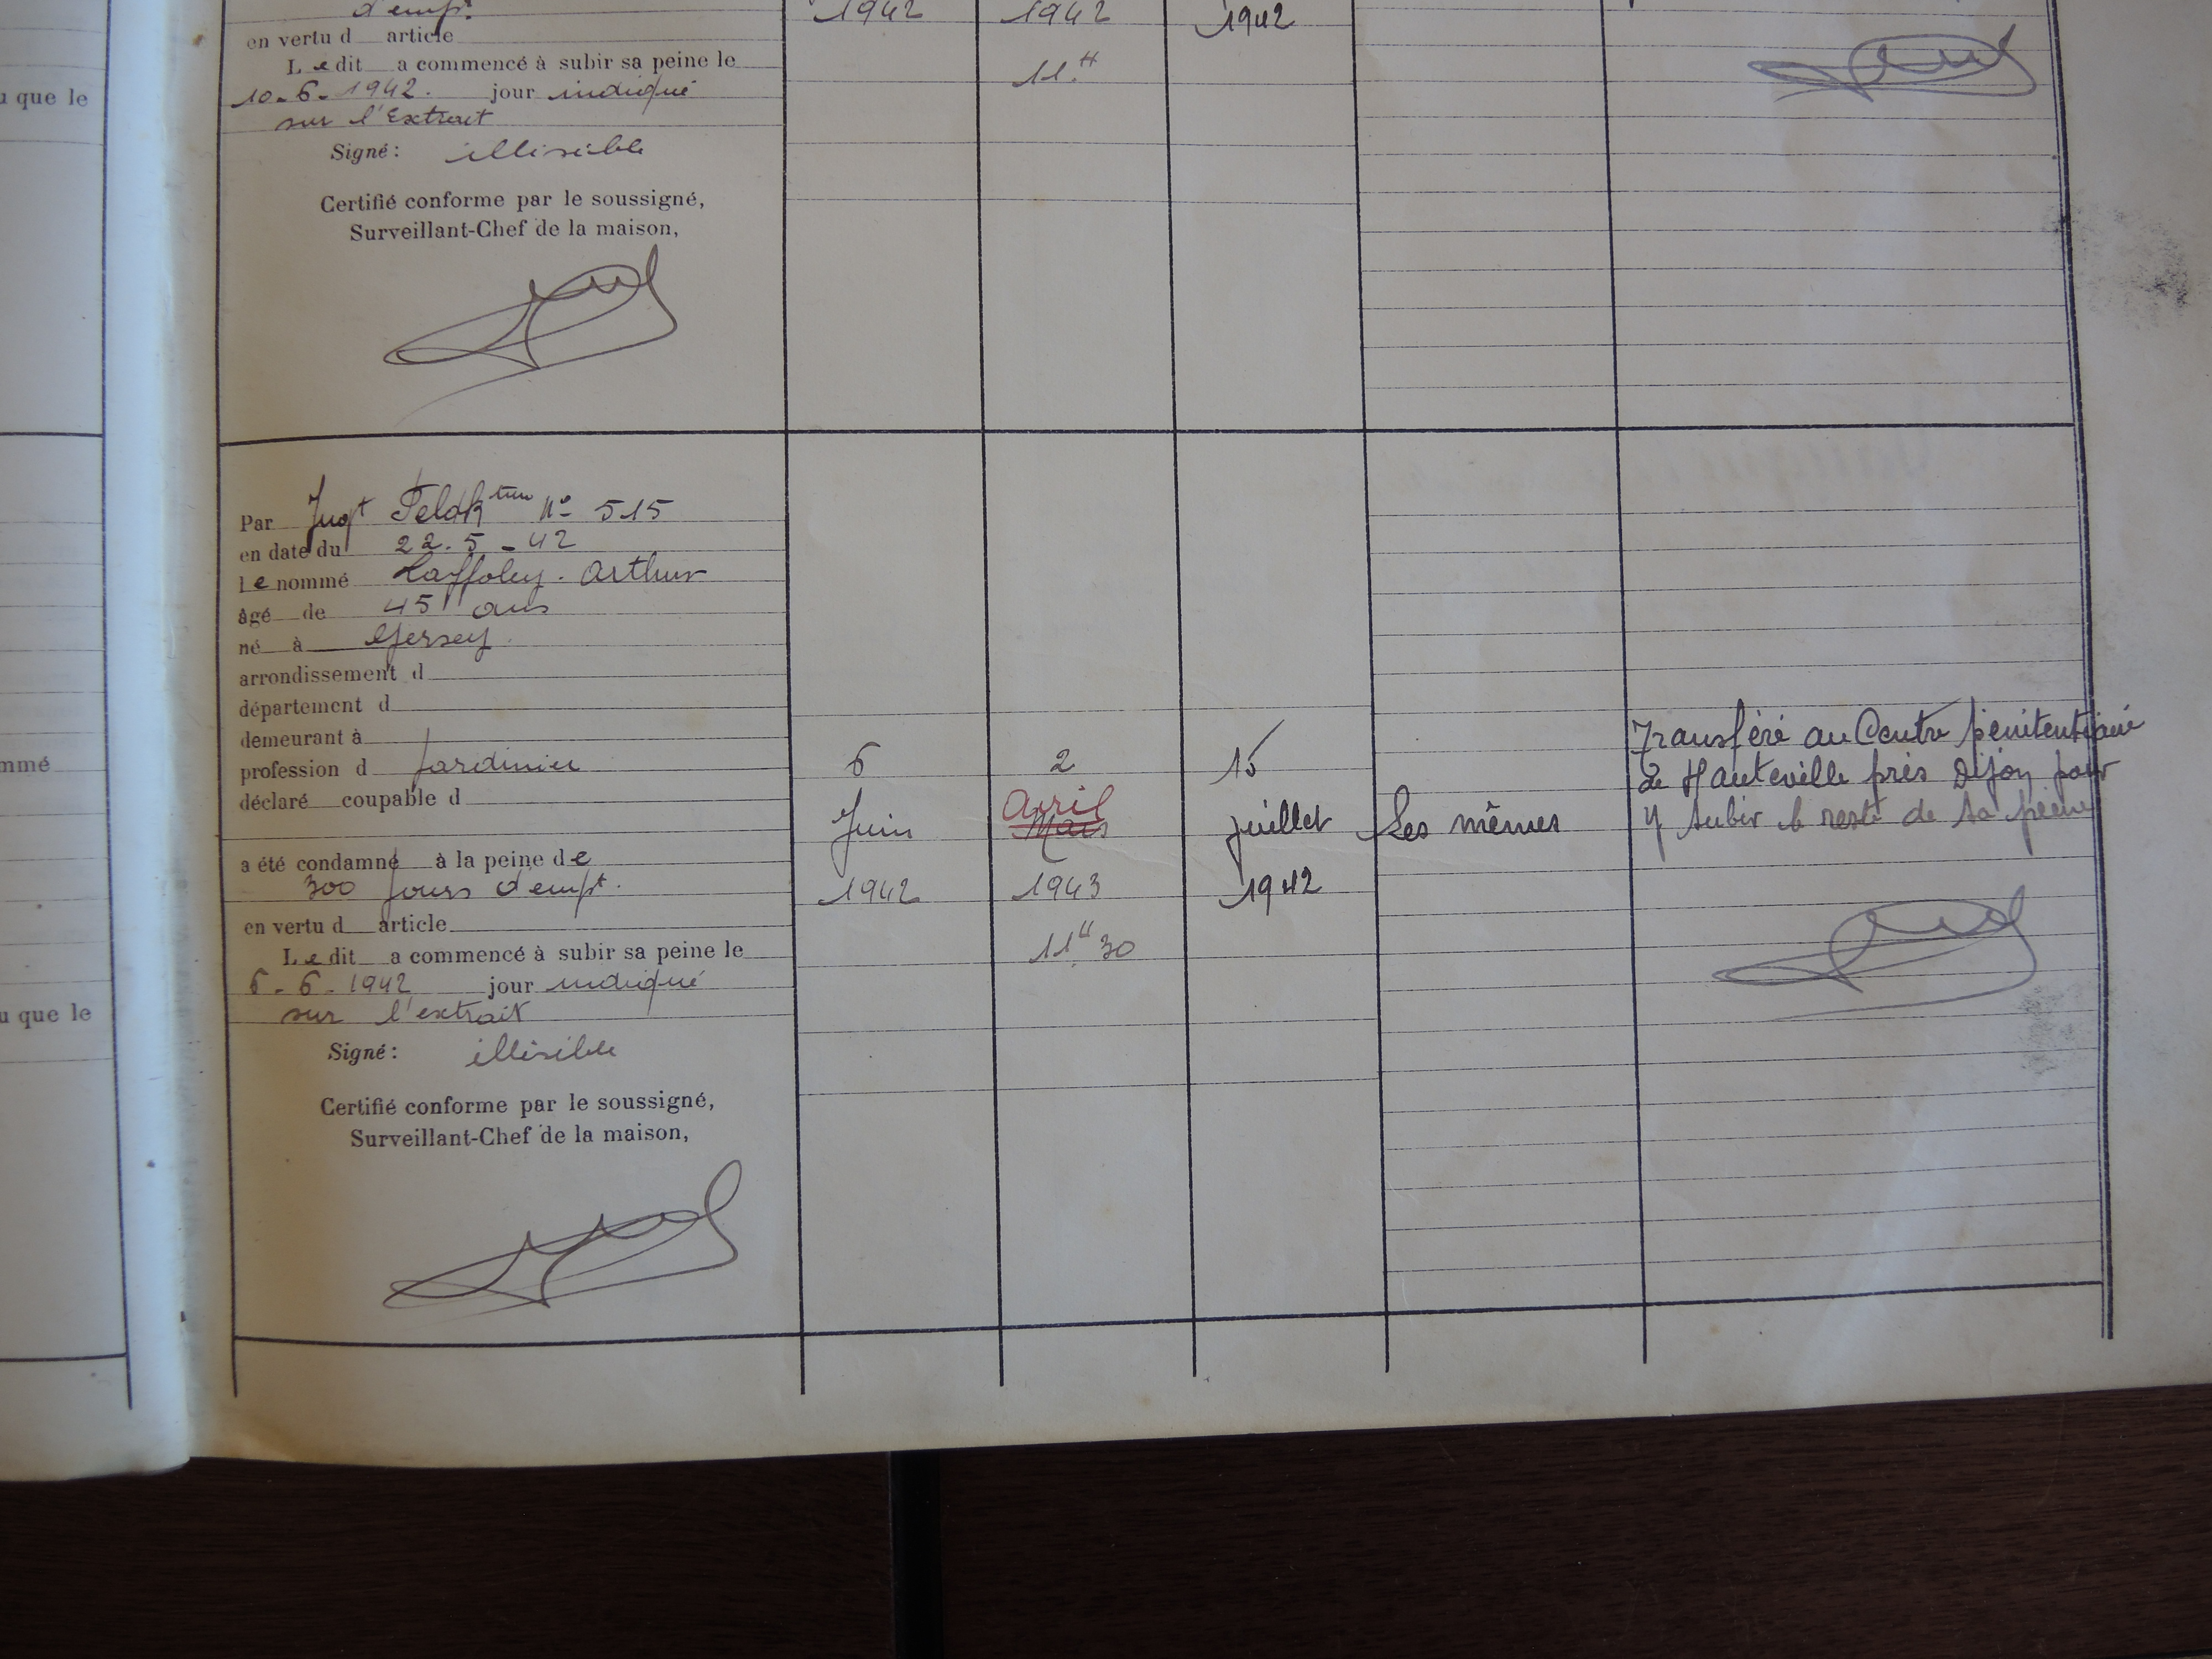 u que le
mmé
u que le
d'empt.
en vertu d article
Le dit a commencé à subir sa peine le
10-6-1942. jour indiqué
sur l'Extrait
Signé: illisible
Certifié conforme par le soussigné,
Surveillant-Chef de la maison,
1942
1942
11.H
1942
Par Jugt Feldk N° 515
en date du 22.5-42
Le nommé Laffoley. Arthur
âgé de 45 ans
né à Jersey.
arrondissement d
département d
demeurant à
profession d Jardinier
déclaré coupable d
a été condamné à la peine de
300 jours d'empt.
en vertu d article
Le dit a commencé à subir sa peine le
6-6-1942 jour indiqué
sur l'extrait
Signé: illisible
Certifié conforme par le soussigné,
Surveillant-Chef de la maison,
6
Juin
1942
2
Avril
Mars
1943
11H30
15
juillet
1942
Les mêmes
Transféré au Centre pénitentiaire
de Hauteville près Dijon pour
y subir le reste de sa peine